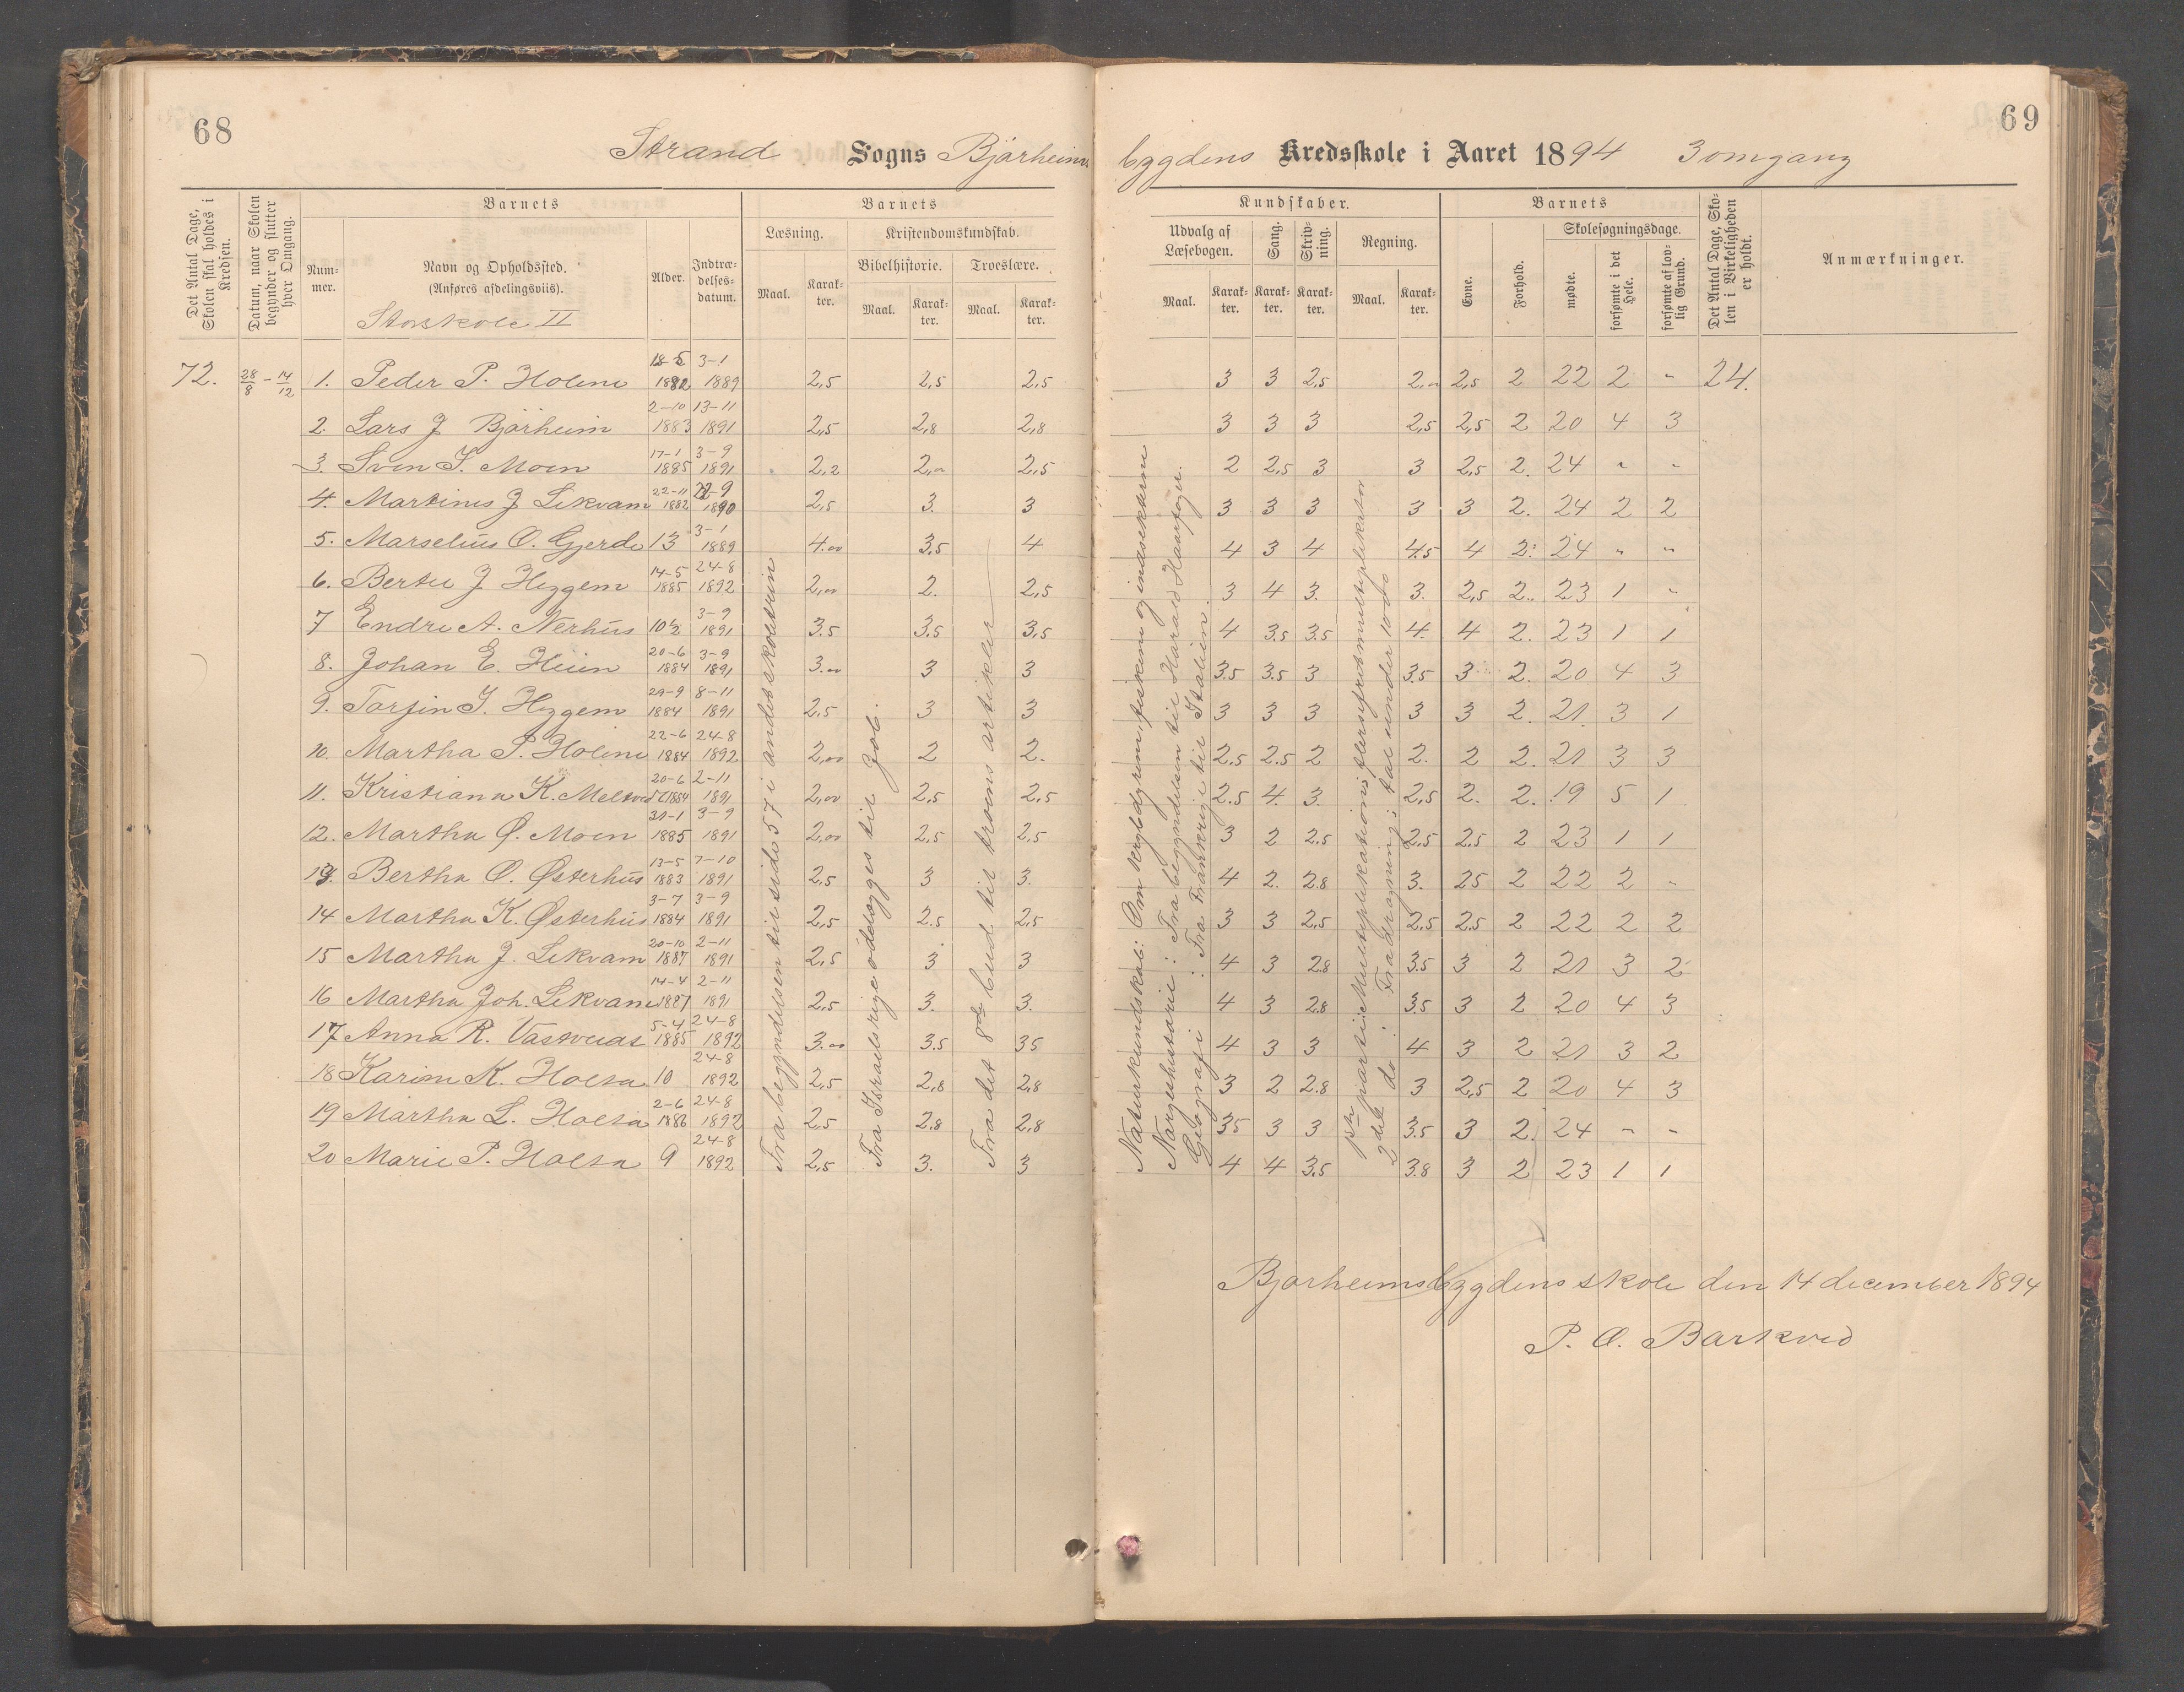 68
Strand Sogns Bjørheims
Det Antal Dage, Skolen skal holdes i Kredsen.
Datum, naar Skolen begynder og slutter hver Omgang.
Barnets
Barnets
Nummer.
Navn og Opholdssted. (Anføres afdelingsviis).
Alder.
Indtrædelsesdatum.
Læsning.
Kristendomskundskab.
Bibelhistorie.
Troeslære.
Maal.
Karakter.
Maal.
Karakter.
Maal.
Karakter.
Storskole II
72. 28/8 - 14/12 1. Peder P. Holene 18-5 1882 3-1 1889 2,5 2,5 2,5
2. Lars J Bjørheim 2-10 1883 13-11 1891 2,5 2,8 2,8
3. Sven I. Moen 17-1 1885 3-9 1891 2,2 2,00 2,5
4. Martines J Lekvam 22-11 1882 22-9 1890 2,5 3. 3
5. Marselius O. Gjerde 13 3-1 1889 4.00 3,5 4
6. Bertil J Heggem 14-5 1885 24-8 1892 2,00 2. 2,5
7 Endre A. Nerhus 10½ 3-9 1891 3.5 3,5 3,5
8. Johan E. Heien 20-6 1884 3-9 1891 3.00 3 3
9. Torfin I. Heggem 29-9 1884 8-11 1891 2,5 3 3
10. Martha P. Holene 22-6 1884 24-8 1892 2,00 2 2.
11. Kristiana K. Meltveit 20-6 1884 2-11 1891 2,00 2,5 2,5
12. Martha Ø. Moen 31-1 1885 3-9 1891 2,00 2,5 2,5
13. Bertha O. Østerhus 13-5 1883 7-10 1891 2,5 3 3.
14 Martha K. Østerhus 3-7 1884 3-9 1891 2,5 2.5 2,5
15 Martha J. Lekvam 20-10 1887 2-11 1891 2,5 3 3
16 Martha Joh. Lekvam 14-4 1887 2-11 1891 2,5 3. 3.
17 Anna R. Vastveit 5-4 1885 24-8 1892 3.00 3.5 35
18 Karine K. Holta 10 24-8 1892 2,5 2,8 2,8
19 Martha L. Holta 2-6 1886 24-8 1892 2,5 2.8 2,8
20 Marie P. Holta 9 24-8 1892 2,5 3. 3
Fra begyndelsen til side 57 i andet skoletrin
Fra Israels rige ødelægges til Job.
Fra det 8de bud til troens artikler
69
bygdens Kredsskole i Aaret 1894 3 omgang
Kundskaber.
Barnets
Udvalg af Læsebogen.
Sang.
Skrivning.
Regning.
Evne.
Forhold.
Skolesøgningsdage.
mødte.
forsømte i det Hele.
forsømte af lovlig Grund.
Det Antal Dage, Skolen i Virkeligheden er holdt.
Anmærkninger.
Maal.
Karakter.
Karakter.
Karakter.
Maal.
Karakter.
3 3 2,5 2,00 2,5 2 22 2 " 24.
3 3 3 2,5 2,5 2 20 4 3
2 2,5 3 3 2,5 2. 24 " "
3 3 3 3 3 2. 24 2 2
4 3 4 4.5 4 2. 24 " "
3 4 3. 3. 2,5 2.. 23 1 "
4 3.5 3.5 4. 4 2. 23 1 1
3.5 3.5 3 3.5 3 2. 20 4 3
3 3 3 3 3 2. 21. 3 1
2.5 2.5 2 2. 2 2. 21 3 3
2.5 4. 3. 2,5 2. 2. 19 5 1
3 2 2.5 2,5 2.5 2 23 1 1
4 2. 2.8 3. 25 2 22 2 "
3 3 2,5 2,5 2.5 2 22 2 2
4 3 2.8 3.5 3 2 21 3 2
4 3 2.8 3.5 3 2 20 4 3
4 3 3 4 3 2 21 3 2
3 2 2.8 3 2,5 2 20 4 3
35 3 3 3.5 3 2. 24 " "
4 4 3.5 3.8 3 2 23 1 1
Naturkundskab: Om krybdyrene, fiskene og insekterne
Norgeshistorie: Fra begyndelsen til Harald Haarfagre.
Geografi: Fra Frankrige til Italien.
1ste parti: Multiplikation i flersifret multiplikator
2det do: Fradragning i tal under 1000
Bjørheimsbygdens skole den 14 december 1894
P. O. Barkved